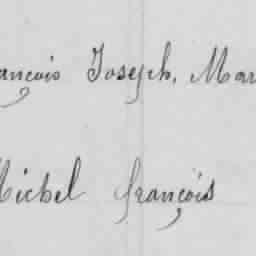 ançois Joseph, Mar
Michel françois